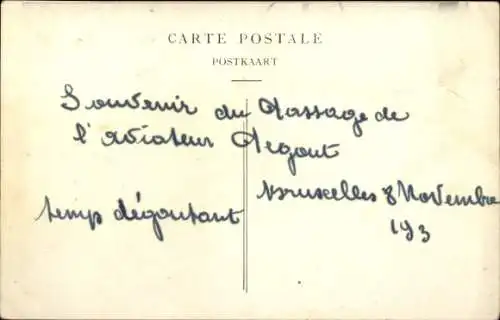 CARTE POSTALE
POSTKAART
Souvenir du Passage de
l'aviateur Pegout
Bruxelles 8 Novembre
temps dégoutant
193